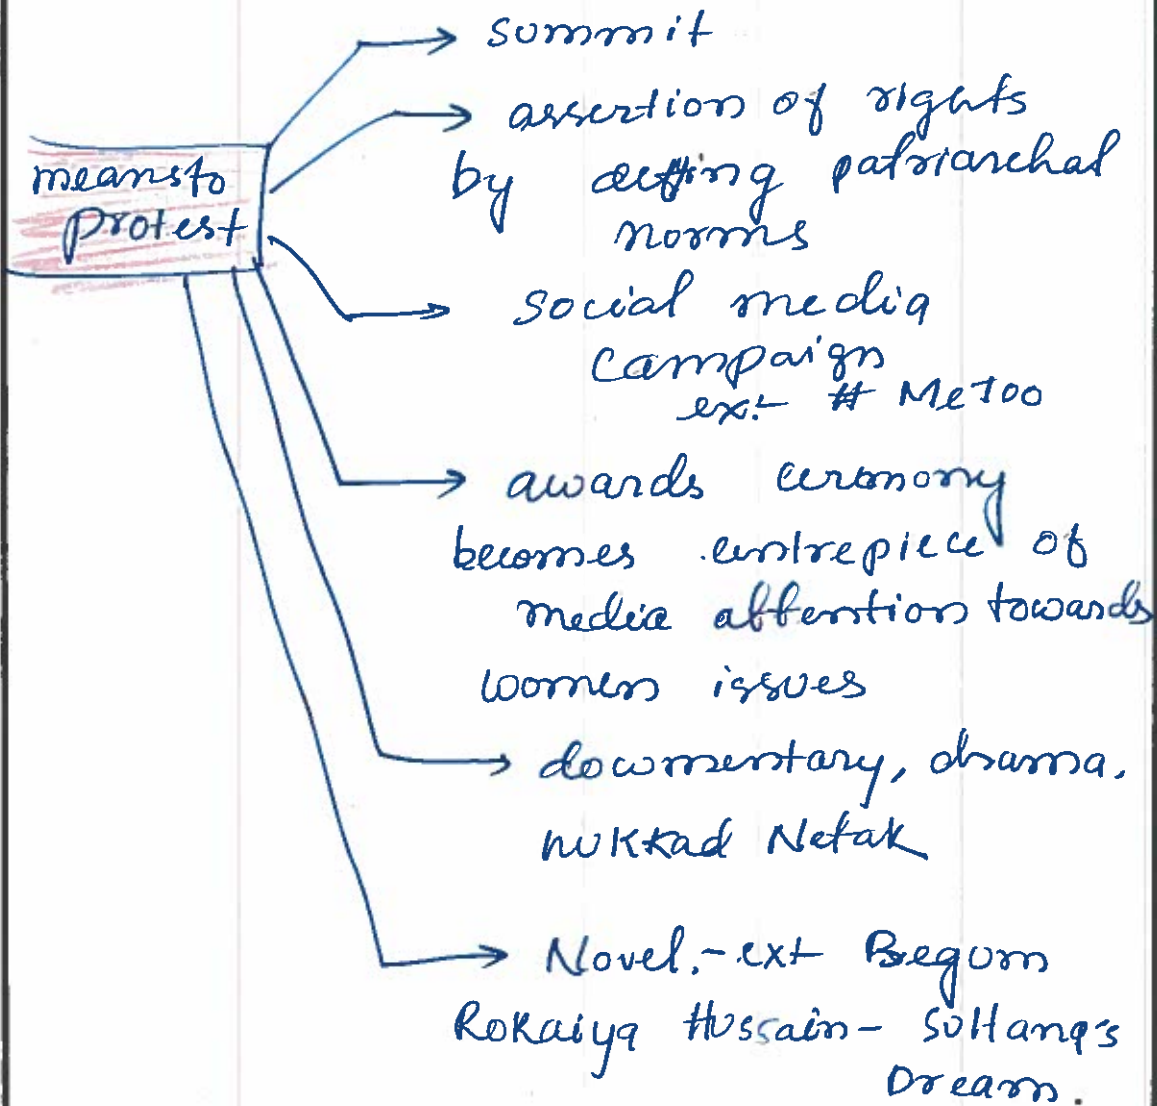 summit
assertion of rights
means to
protest
by defying patriarchal
norms
social media
campaign
ex:- # MeToo
awards ceromony
becomes centrepiece of
media attention towards
women issues
documentary, drama,
nukkad Natak
Novel.- ex:- Begum
Rokaiya Hussain - Sultana's
Dream.